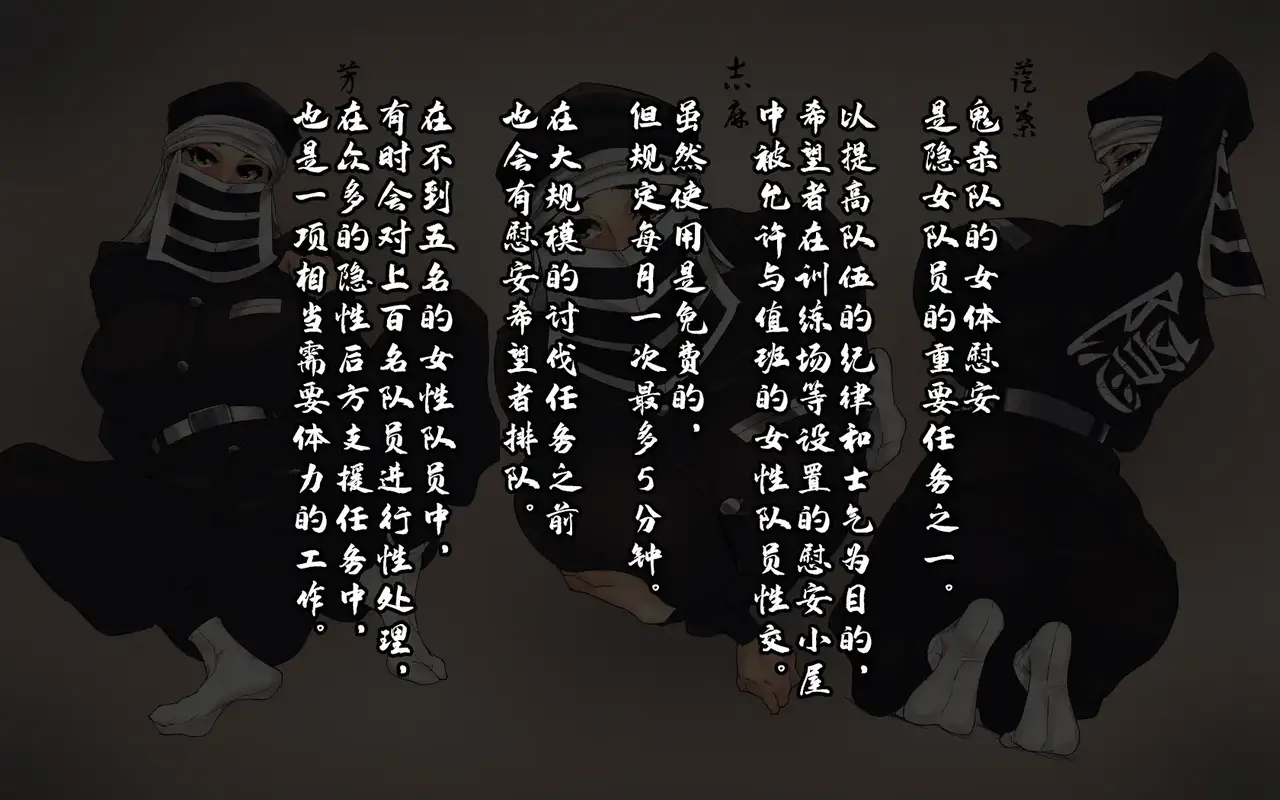 鬼杀队的女体慰安
是隐女队员的重要任务之一。
以提高队伍的纪律和士气为目的,
希望者在训练场等设置的慰安小屋
中被允许与值班的女性队员性交。
虽然使用是免费的,
但规定每月一次最多5分钟。
在大规模的讨伐任务之前
也会有慰安希望者排队。
在不到五名的女性队员中,
有时会对上百名队员进行性处理,
在众多的隐性后方支援任务中,
也是一项相当需要体力的工作。
志麻
芳